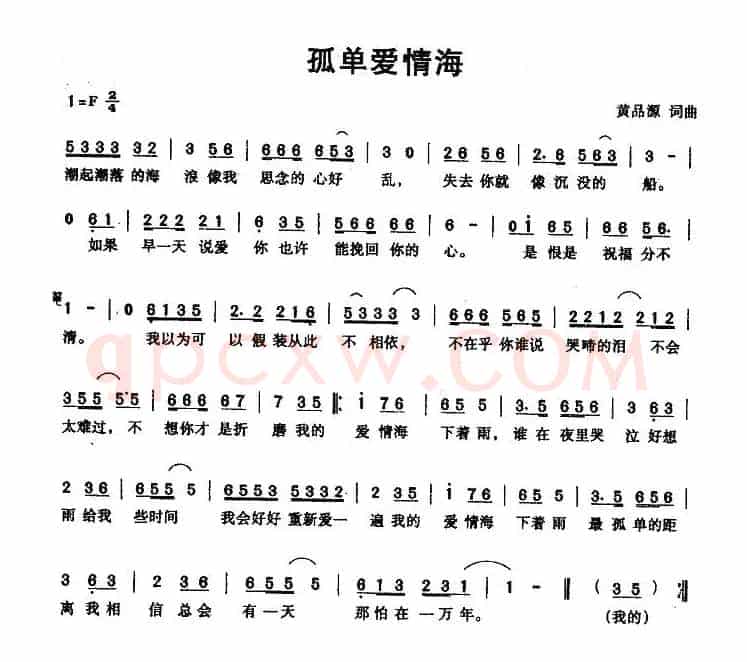 孤单爱情海
1=F 2/4
黄品源 词曲
5333 32 | 3 56 | 666 653 | 3 0 | 26 56 | 2. 563 | 3 - |
潮起潮落的海 浪像我 思念的心好 乱, 失去你就 像沉没的 船。
0 61 | 222 21 | 6 35 | 566 66 | 6 - | 0i 65 | 66 56 |
如果 早一天说爱 你也许 能挽回你的 心。 是恨是 祝福分不
1 - | 0 6135 | 2.2 216 | 5333 3 | 666 565 | 2212 212 |
清。 我以为可 以假装从此 不相依, 不在乎你谁说 哭啼的泪 不会
355 55 | 666 67 | 7 35 ‖: i 76 | 65 5 | 3.5 656 | 3 63 |
太难过, 不 想你才是折 磨我的 爱情海 下着雨, 谁在夜里哭 泣好想
2 36 | 655 5 | 6553 5332 | 2 35 | i 76 | 655 | 3.5 656 |
雨给我 些时间 我会好好重新爱一 遍我的 爱情海 下着雨 最孤单的距
3 63 | 2 36 | 655 5 | 613 231 | 1 - ‖ (35) :‖
离我相 信总会 有一天 那怕在一万年。 (我的)
qpcxw.COM